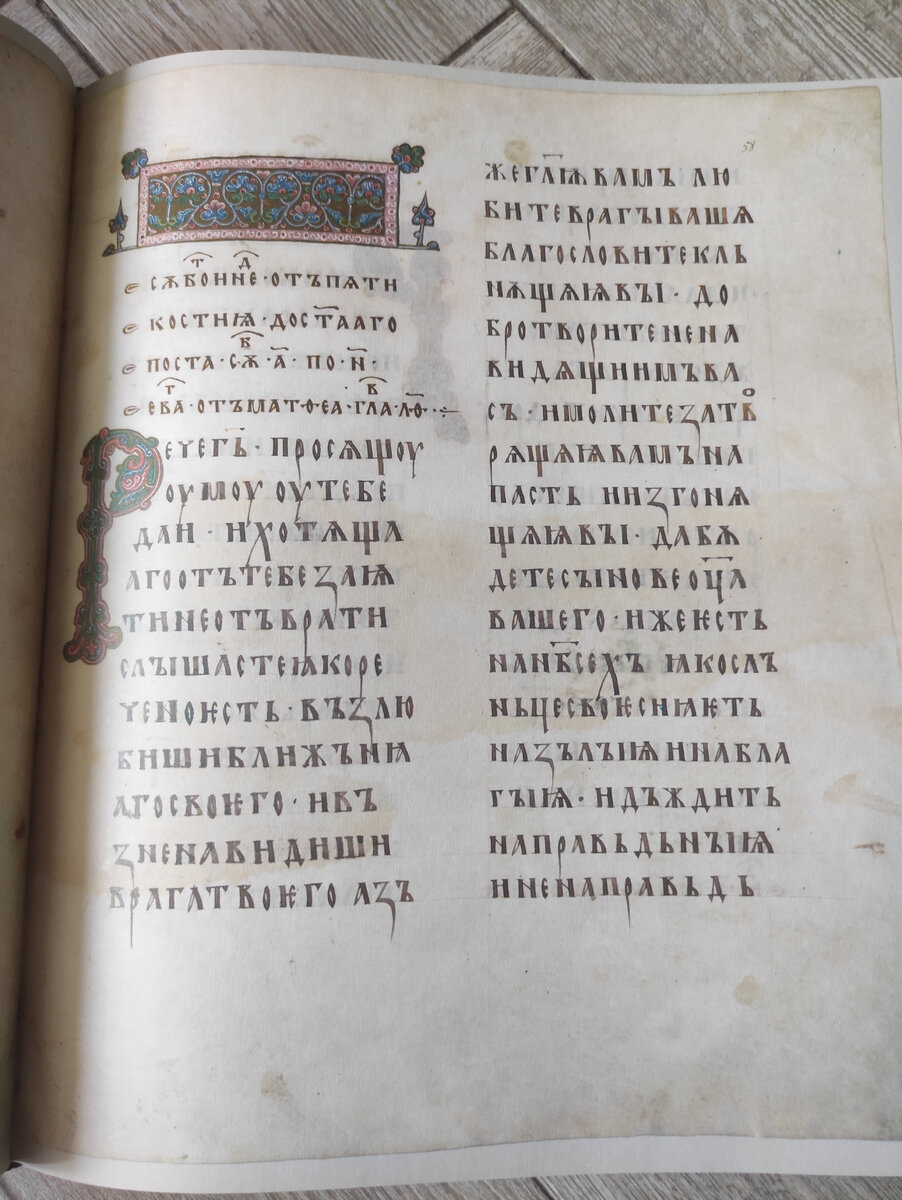 58
сѫботнѣ · отъ пѧти
костиꙗ · доста͞аго
поста · сѫб · а҃ · по · н҃ ·
ева · отъ мат · ѳ · еа · гла · л҃о ·
Рече г҃ь · просѧщоу
оумоу оу тебе
даи · и хотѧща
аго отъ тебе заꙗ
ти не отъврати
слышасте ꙗко ре
чено ѥсть · възлю
биши ближьнꙗ
аго своѥго · и въ
зненавидиши
врага твоѥго азъ
же г҃лѭ вамъ лю
бите врагы вашѧ
благословите кль
нѫщѧꙗ вы · до
бро творите нена
видѧщиимъ ва
съ · и молите за тво
рѧщѧꙗ вамъ на
пасть и изгонѧ
щѧꙗ вы · да бѫ
дете сынове оц҃а
вашего · иже ѥсть
на нб҃сехъ ꙗко сл
ньце своѥ сиꙗѥть
на зълыѩ и на бла
гыѩ · и дъждить
на правьдьныѩ
и неправьдь